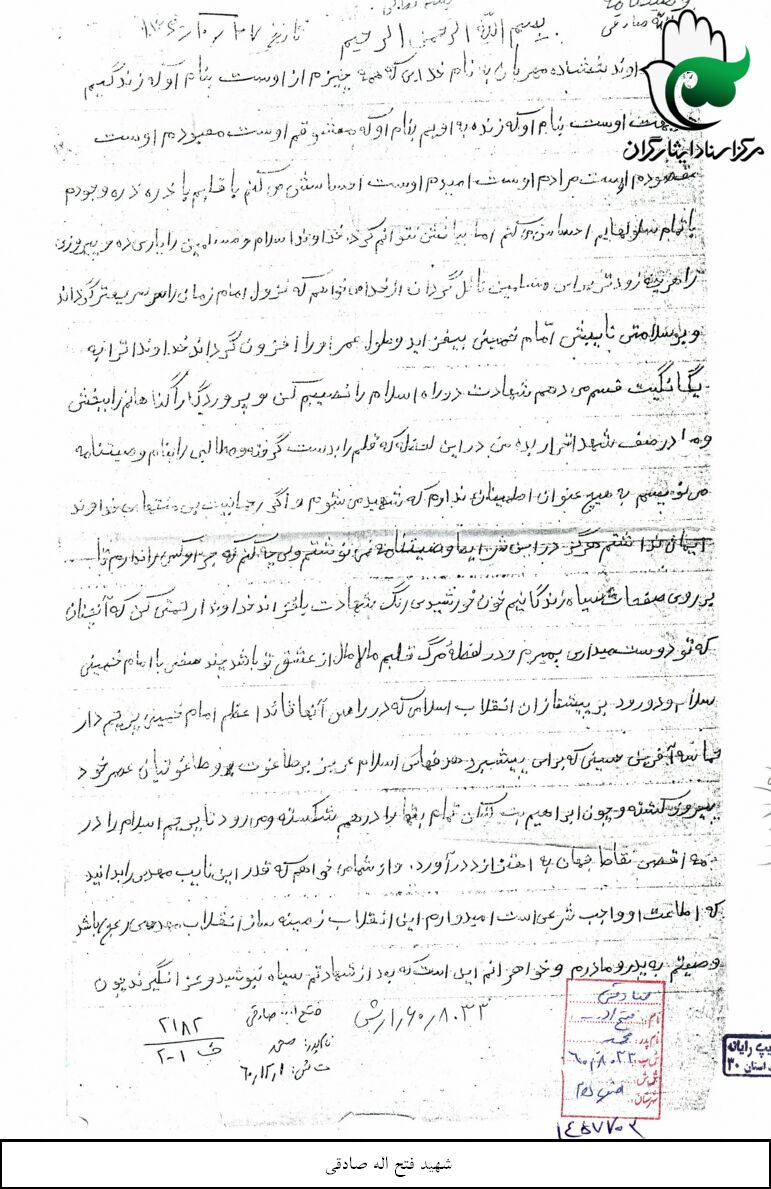 وصیتنامه
فتح الله صادقی
بسم الله الرحمن الرحیم
تاریخ
مرکز اسناد ایثارگران
خداوند بخشنده مهربان به نام خدایی که همه چیزم از اوست بنام او که زندگیم
اوست بنام او که زنده به اویم بنام او که معشوقم اوست معبودم اوست
مقصودم اوست مرادم اوست امیدم اوست احساسش می کنم با قلبم با ذره ذره وجودم
با تمام سلولهایم احساس می کنم اما بیانش نتوانم کرد. خداوندا اسلام و مسلمین را یاری ده و پیروزی
را هر چه زودتر برای مسلمین نائل گردان از خدا می خواهم که نزول امام زمان را هر سریعتر گرداند
و بر سلامتی نایبش امام خمینی بیفزاید و طول عمر او را افزون گرداند خداوندا ترا به
یگانگیت قسم می دهم شهادت در راه اسلام را نصیبم کن و پروردگارا گناهانم را ببخش
و مرا در صف شهدا قرار بده من در این لحظه که قلم را بدست گرفته و مطالبی را بنام وصیتنامه
می نویسم به هیچ عنوان اطمینان ندارم که شهید می شوم و اگر رحمانیت بی منتهای خداوند
ایمان نداشتم هرگز در این شرایط وصیتنامه نمی نوشتم ولی چه کنم که جز او کسی را ندارم تا
بر روی صفحات سیاه زندگانیم خون خورشیدی رنگ شهادت بافزاند خداوندا کمکی کن که آنچنان
که تو دوست میداری بمیرم و در لحظه مرگ قلبم مالامال از عشق تو باشد چند سخنی با امام خمینی
سلام و درود بر پیشتازان انقلاب اسلامی که در راس آنها قائد اعظم امام خمینی پرچم دار
حماسه آفرینی حسینی که برای پیشبرد هدفهای اسلام عزیز بر طاغوت و طاغوتیان عصر خود
پیروز گشته و چون ابراهیم بت شکن تمام بتها را در هم شکسته و می رود تا پرچم اسلام را در
همه اقصی نقاط جهان به اهتزاز در آورد. و از شما می خواهم که قدر این نایب مهدی را بدانید
که اطاعت او واجب شرعی است امیدوارم این انقلاب زمینه ساز انقلاب مهدی (عج) باشد
وصیتم به پدر و مادرم و خواهرانم این است که بعد از شهادتم سیاه نپوشید و عزا نگیرند چون
فتح ا... صادقی
نام پدر:
ت ش: ۶۰/۱۲/۱
۲۱۸۲
ف ۲۰۰۱
ارزشی
صادقی
نام: فتح ا...
نام پدر: محمد
شهرستان:
۱۴۵۷۷۰۲
رایانه
استان ۳۰
شهید فتح اله صادقی